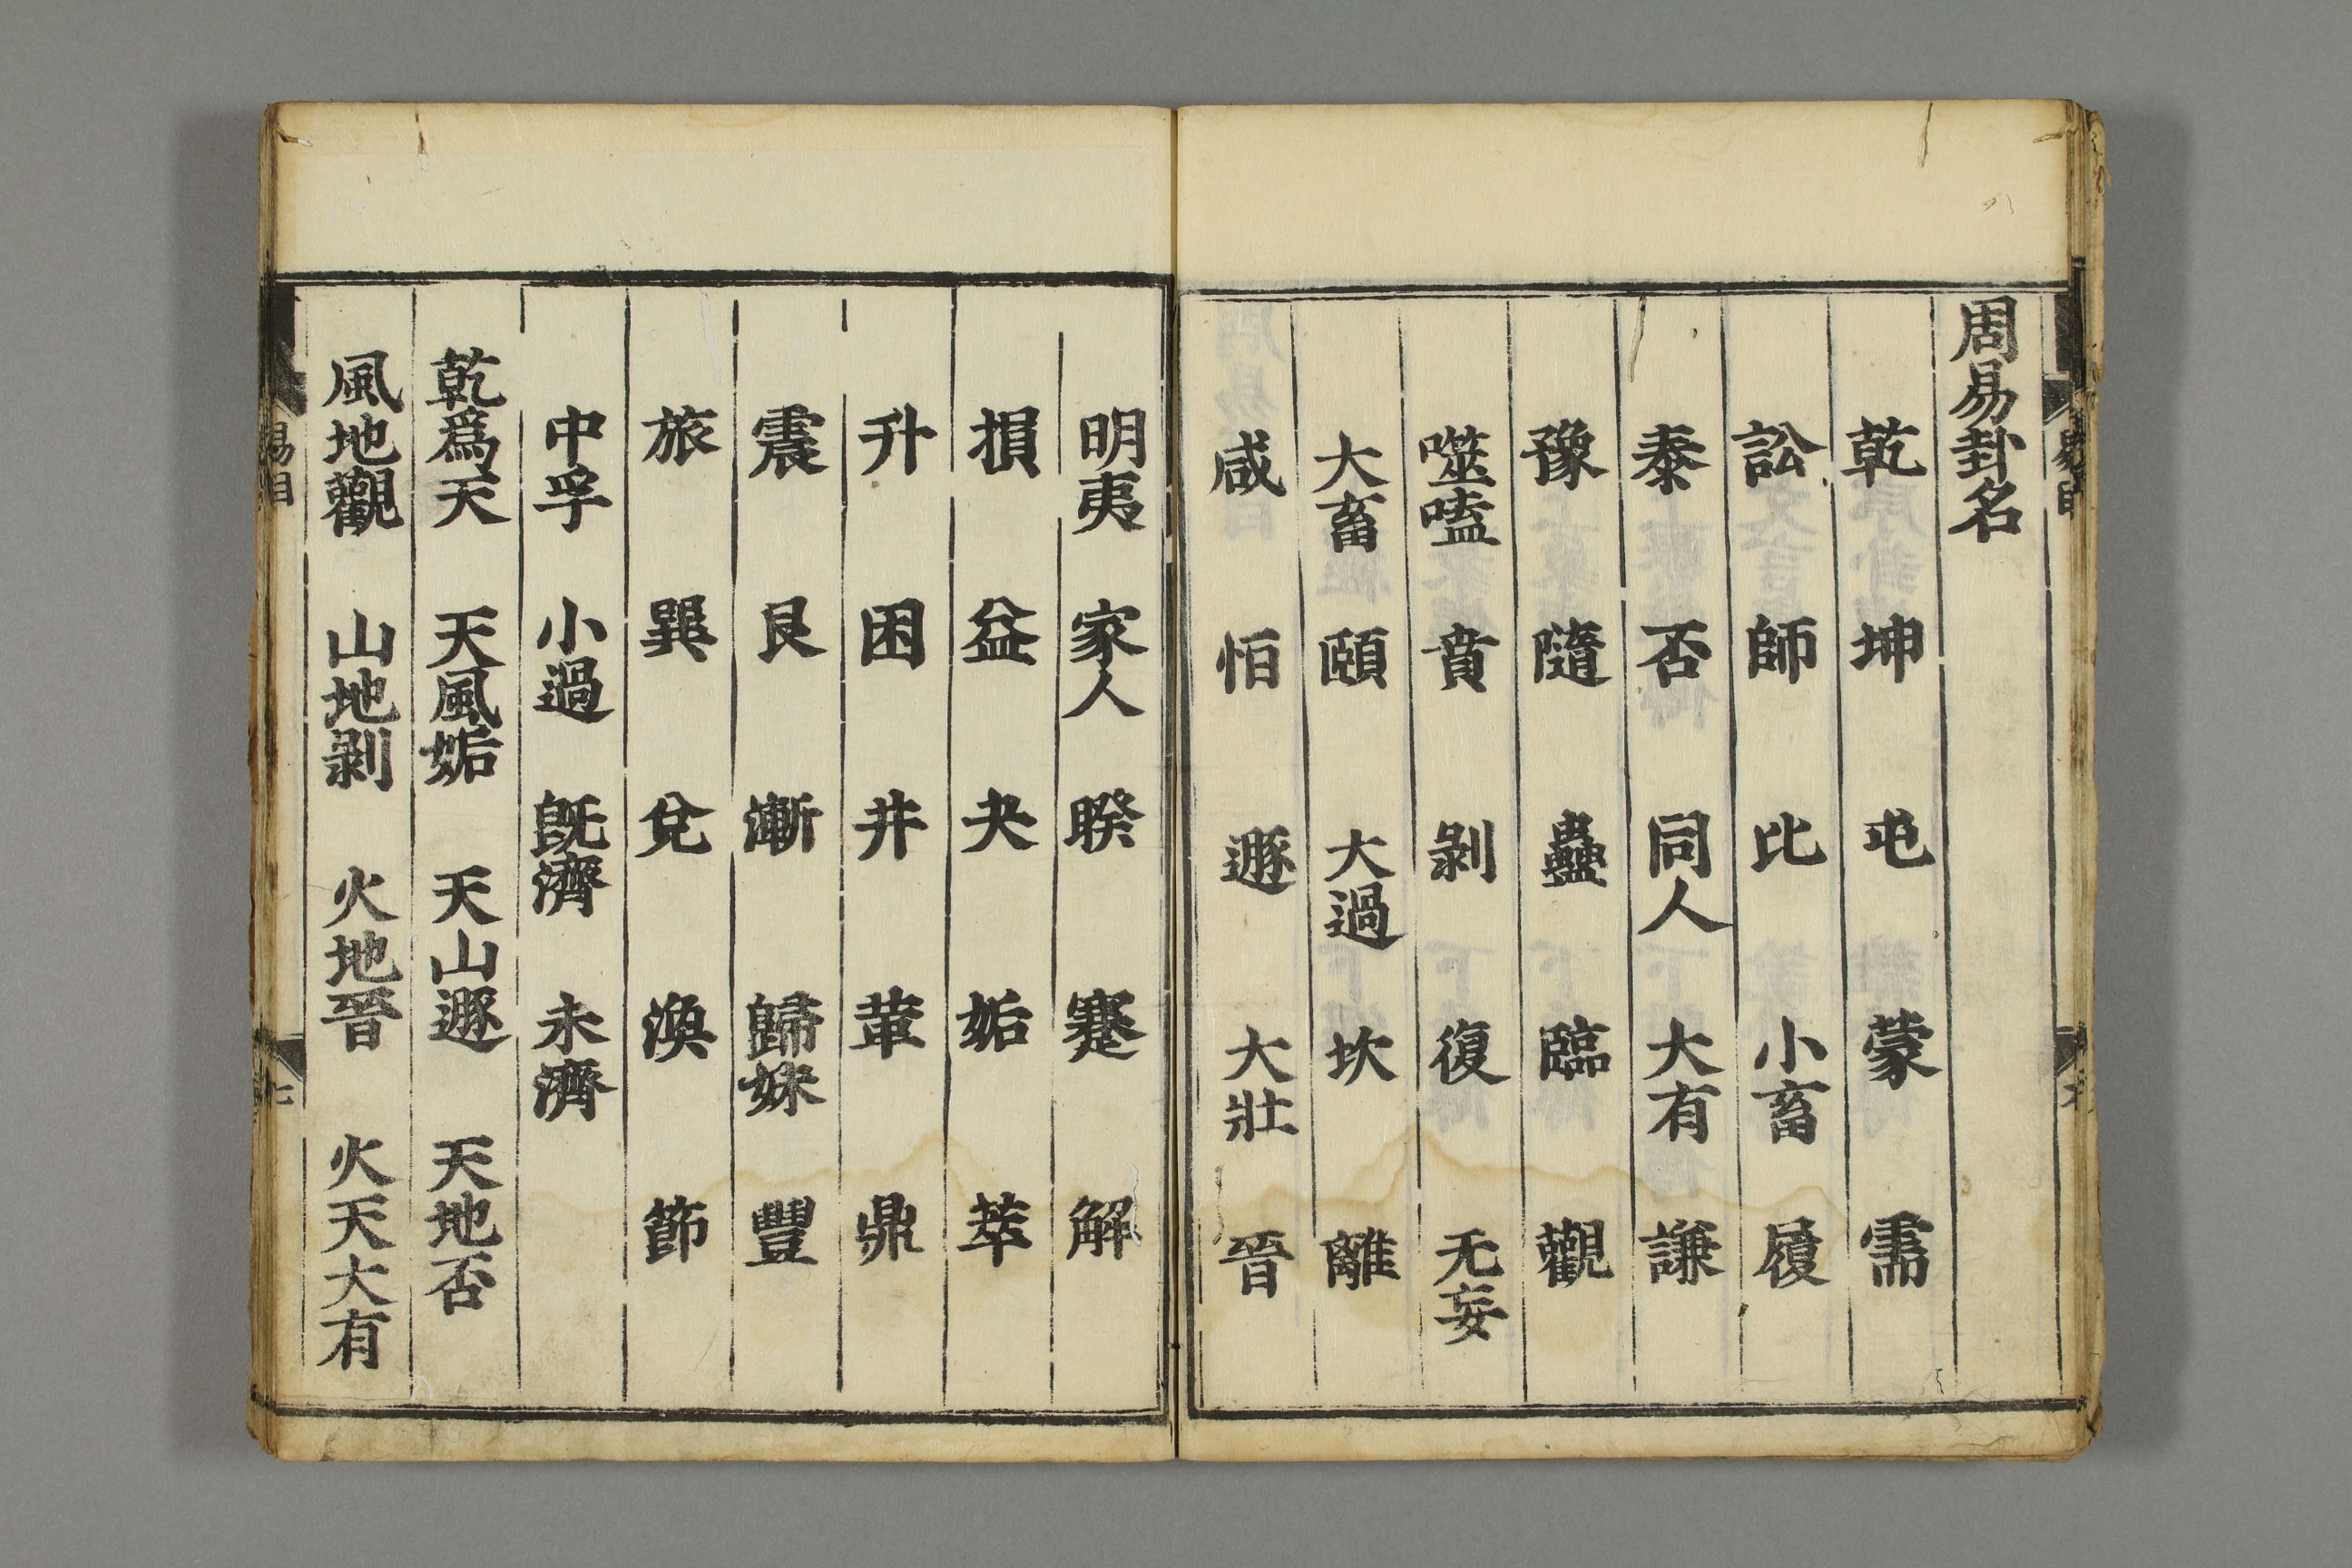 周易卦名
乾 坤 屯 蒙 需
訟 師 比 小畜 履
泰 否 同人 大有 謙
豫 隨 蠱 臨 觀
噬嗑 賁 剝 復 无妄
大畜 頤 大過 坎 離
咸 恒 遯 大壯 晉
明夷 家人 睽 蹇 解
損 益 夬 姤 萃
升 困 井 革 鼎
震 艮 漸 歸妹 豐
旅 巽 兌 渙 節
中孚 小過 旣濟 未濟
乾爲天 天風姤 天山遯 天地否
風地觀 山地剝 火地晉 火天大有
易目
七